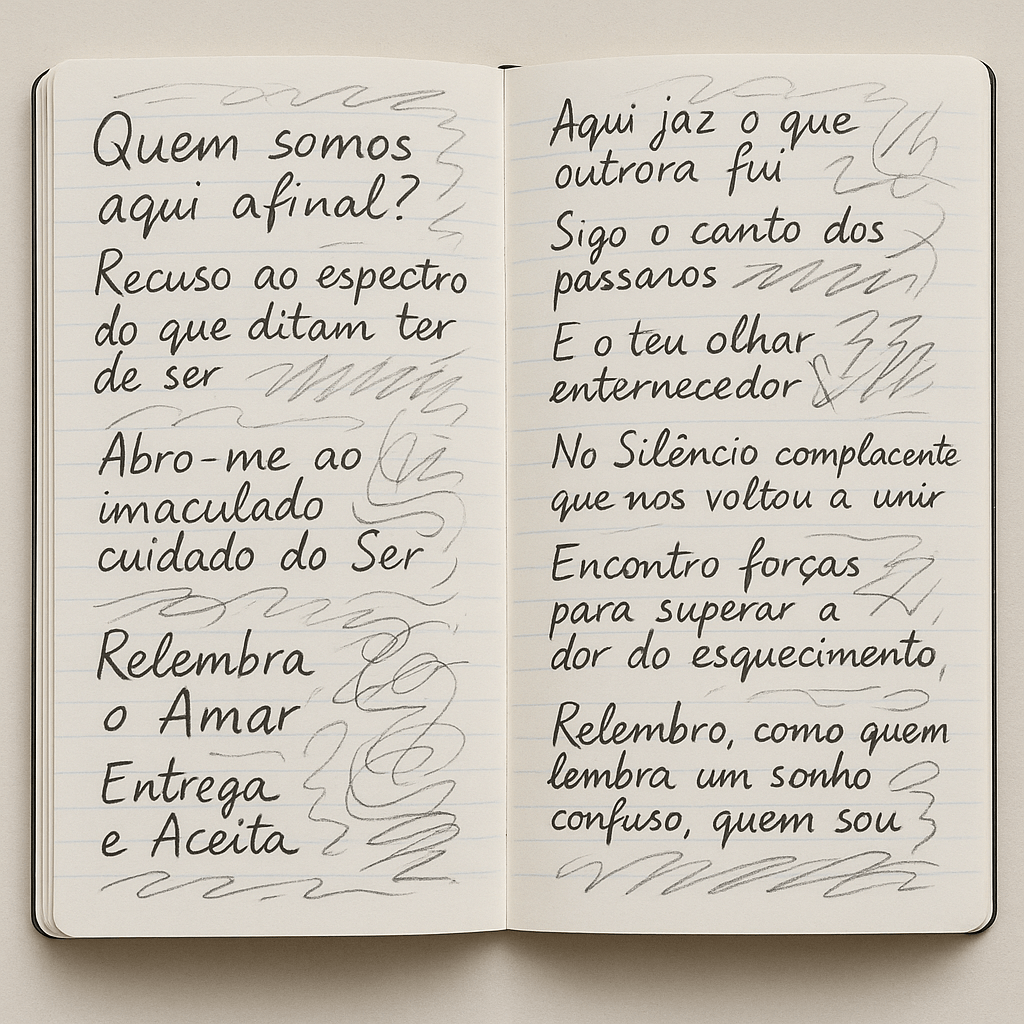 Quem somos
aqui afinal?
Recuso ao espectro
do que ditam ter
de ser
Abro-me ao
imaculado
cuidado do Ser
Relembra
o Amar
Entrega
e Aceita
Aqui jaz o que
outrora fui
Sigo o canto dos
pássaros
E o teu olhar
enternecedor
No Silêncio complacente
que nos voltou a unir
Encontro forças
para superar a
dor do esquecimento,
Relembro, como quem
lembra um sonho
confuso, quem sou